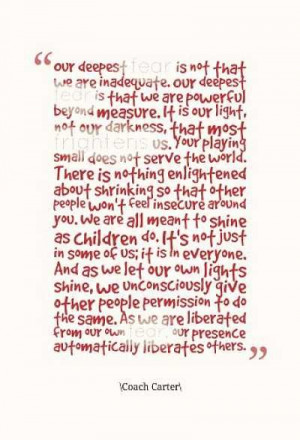 “our deepest fear is not that
we are inadequate. our deepest
fear is that we are powerful
beyond measure. It is our light,
not our darkness, that most
frightens us. Your playing
small does not serve the world.
There is nothing enlightened
about shrinking so that other
people won't feel insecure around
you. We are all meant to shine
as children do. It's not just
in some of us; it is in everyone.
And as we let our own lights
shine, we unconsciously give
other people permission to do
the same. As we are liberated
from our own fear, our presence
automatically liberates others.”
\Coach Carter\